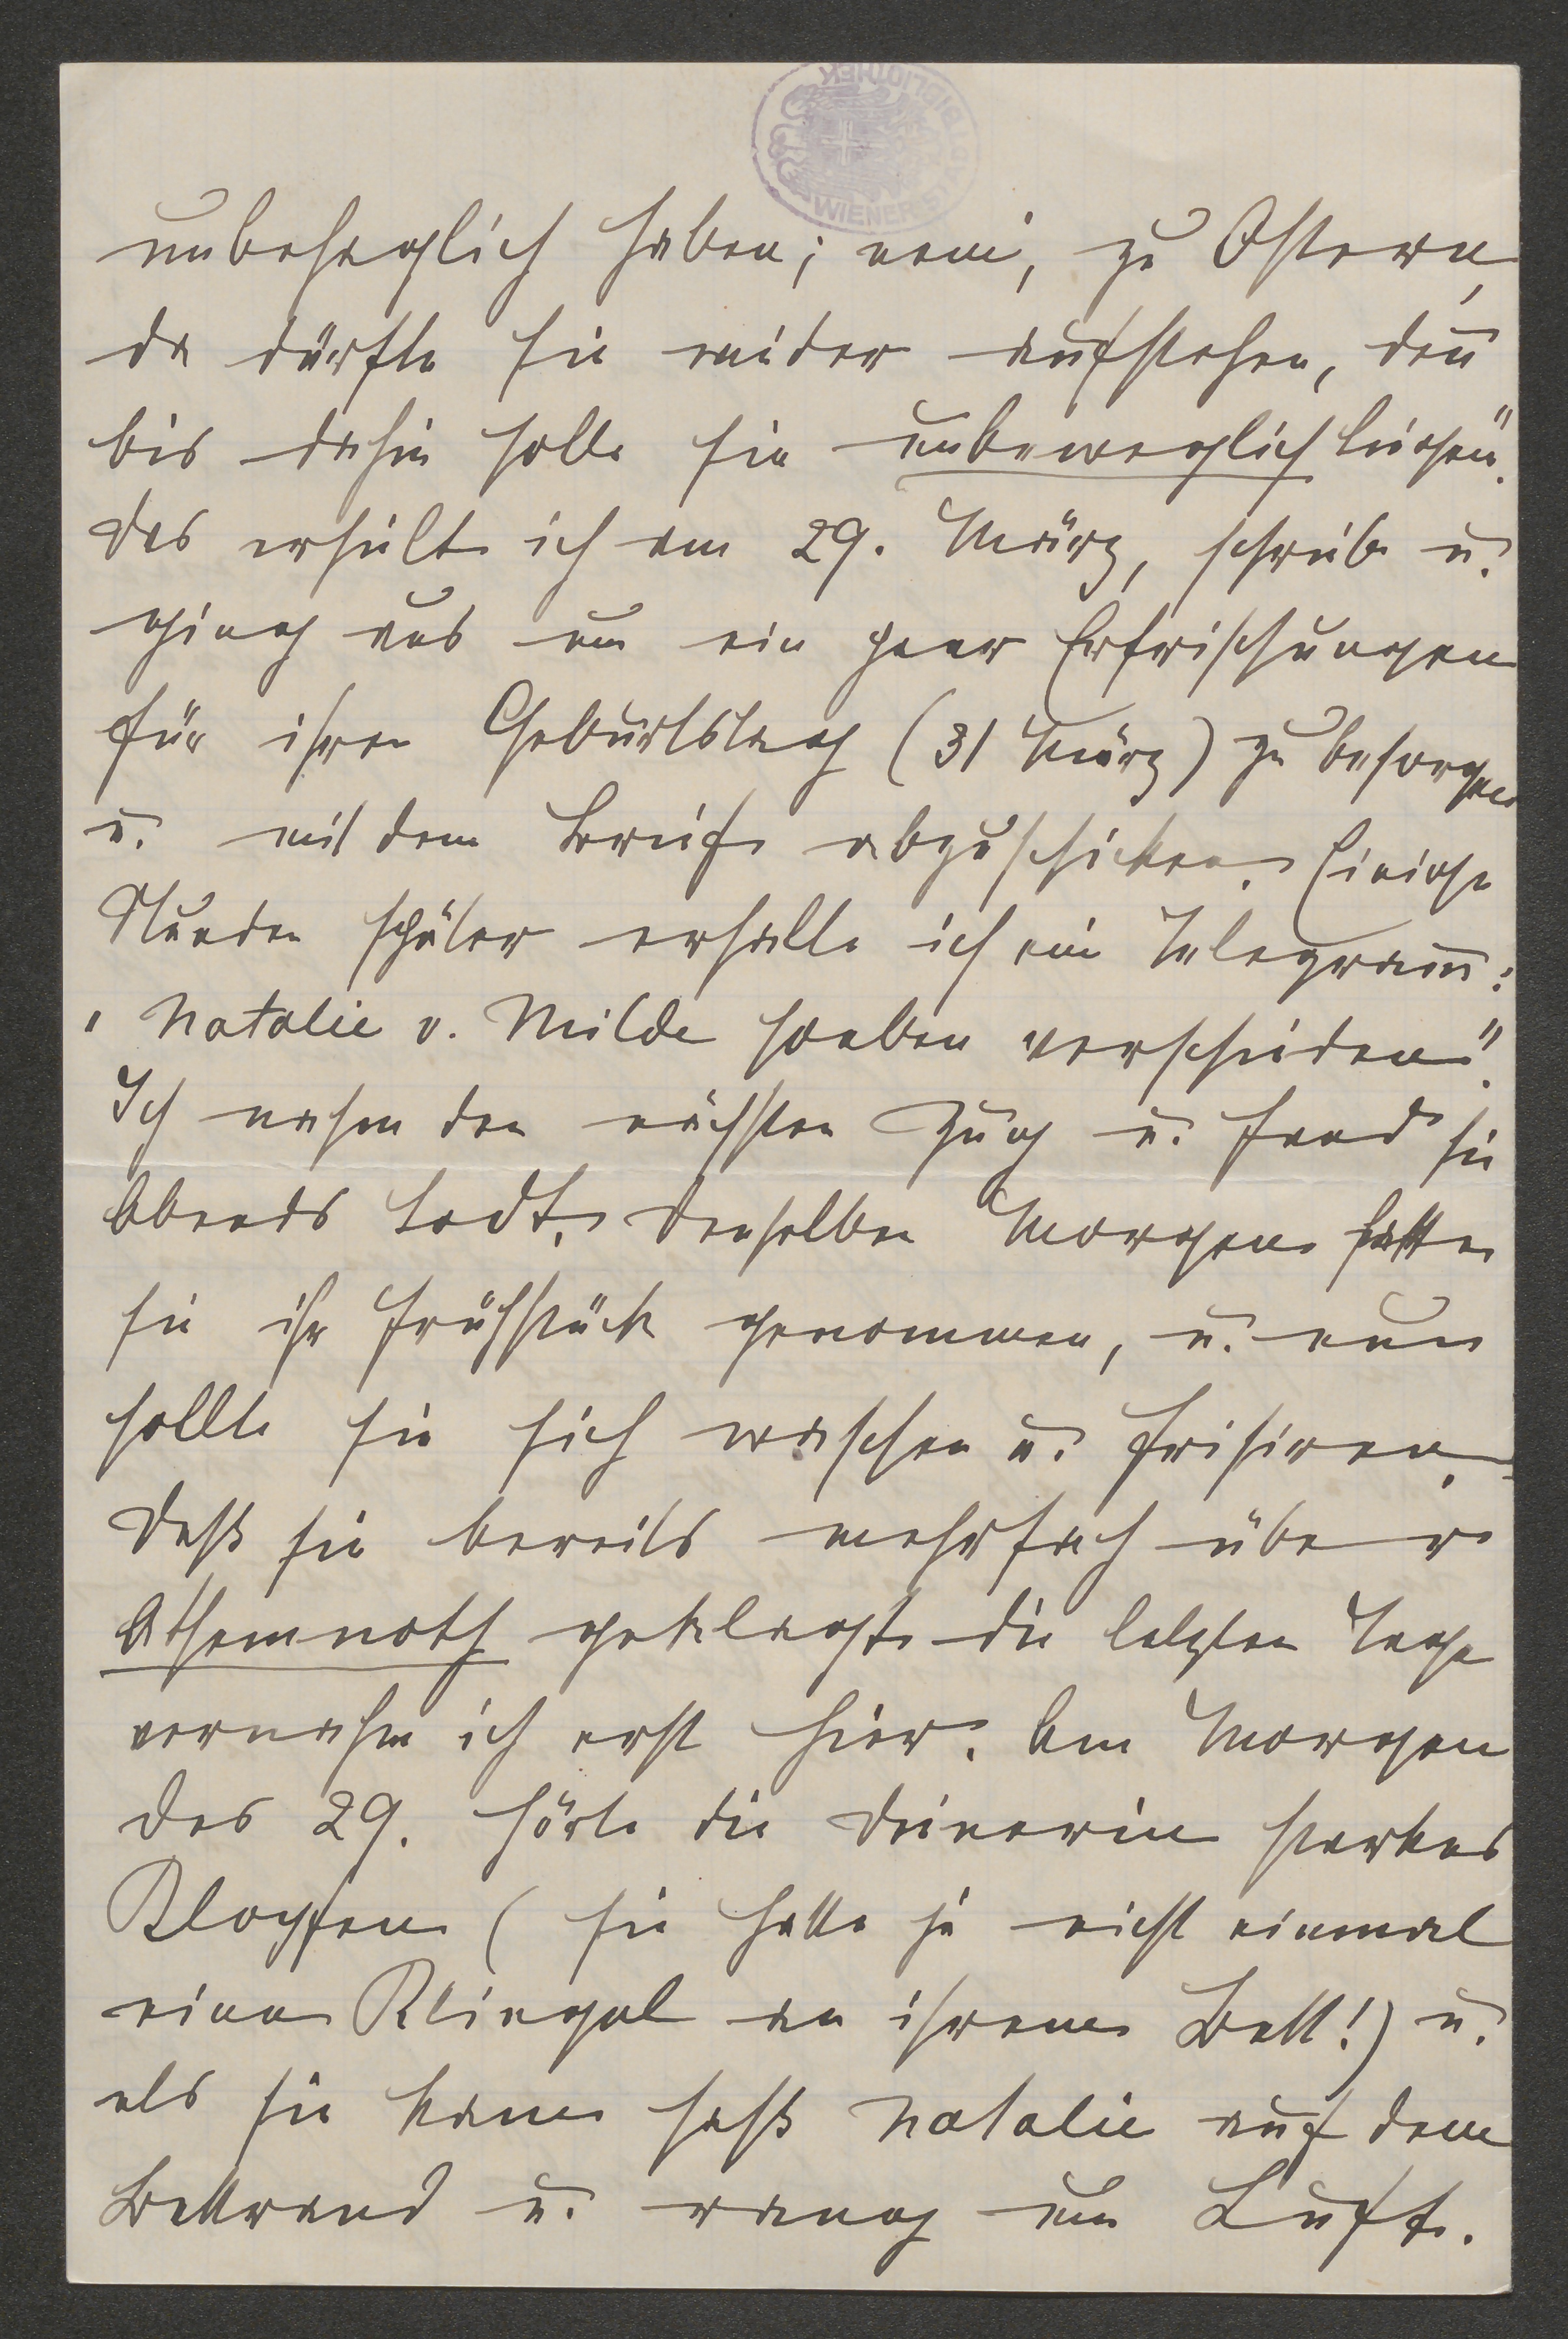 WIENER STADTBIBLIOTHEK
unbehaglich haben; nein, zu Ostern,
da dürfte sie wieder aufstehen, deñ
bis dahin solle sie unbeweglich liegen".
Das erhielt ich am 29. März, schrieb u.
ging aus um ein paar Erfrischungen
für ihren Geburtstag (31 März) zu besorgen
u. mit dem Briefe abzuschicken. Einige
Stunden später erhalte ich ein Telegram̄:
"Natalie v. Milde soeben verschieden".
Ich nahm den nächsten Zug u. fand sie
Abends todt. Denselben Morgen hatte
sie ihr Frühstück genommen, u. nun
sollte sie sich waschen u. frisiren.
Daß sie bereits mehrfach über
Athemnoth geklagt die letzten Tage
vernahm ich erst hier. Am Morgen
des 29. hörte die Dienerin starkes
Klopfen (sie hatte ja nicht einmal
eine Klingel an ihrem Bett!) u.
als sie kam saß Natalie auf dem
Bettrand u. rang um Luft.